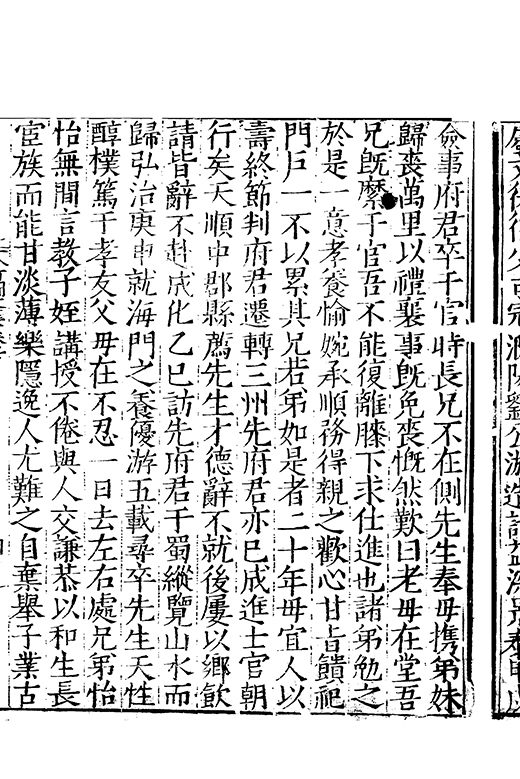 僉事府君卒于官時長兄不在側先生奉母携弟妹
歸喪萬里以禮襄事既免喪慨然歎曰老母在堂吾
兄既縻于官吾不能復離膝下求仕進也諸弟勉之
於是一意孝養愉婉承順務得親之歡心甘旨饋祀
門戶一不以累其兄若弟如是者二十年母宜人以
壽終節判府君遷轉三州先府君亦已成進士官朝
行矣天順中郡縣薦先生才德辭不就後屢以鄉飲
請皆辭不赴成化乙巳訪先府君于蜀縱覽山水而
歸弘治庚申就海門之養優游五載尋卒先生天性
醇樸篤于孝友父母在不忍一日去左右處兄弟怡
怡無間言教子姪講授不倦與人交謙恭以和生長
宦族而能甘淡薄樂隱逸人尤難之自棄舉子業古